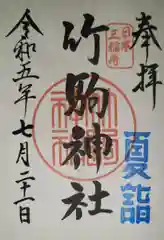 奉拝
日本三稲荷
夏詣
竹駒神社
令和五年七月二十一日